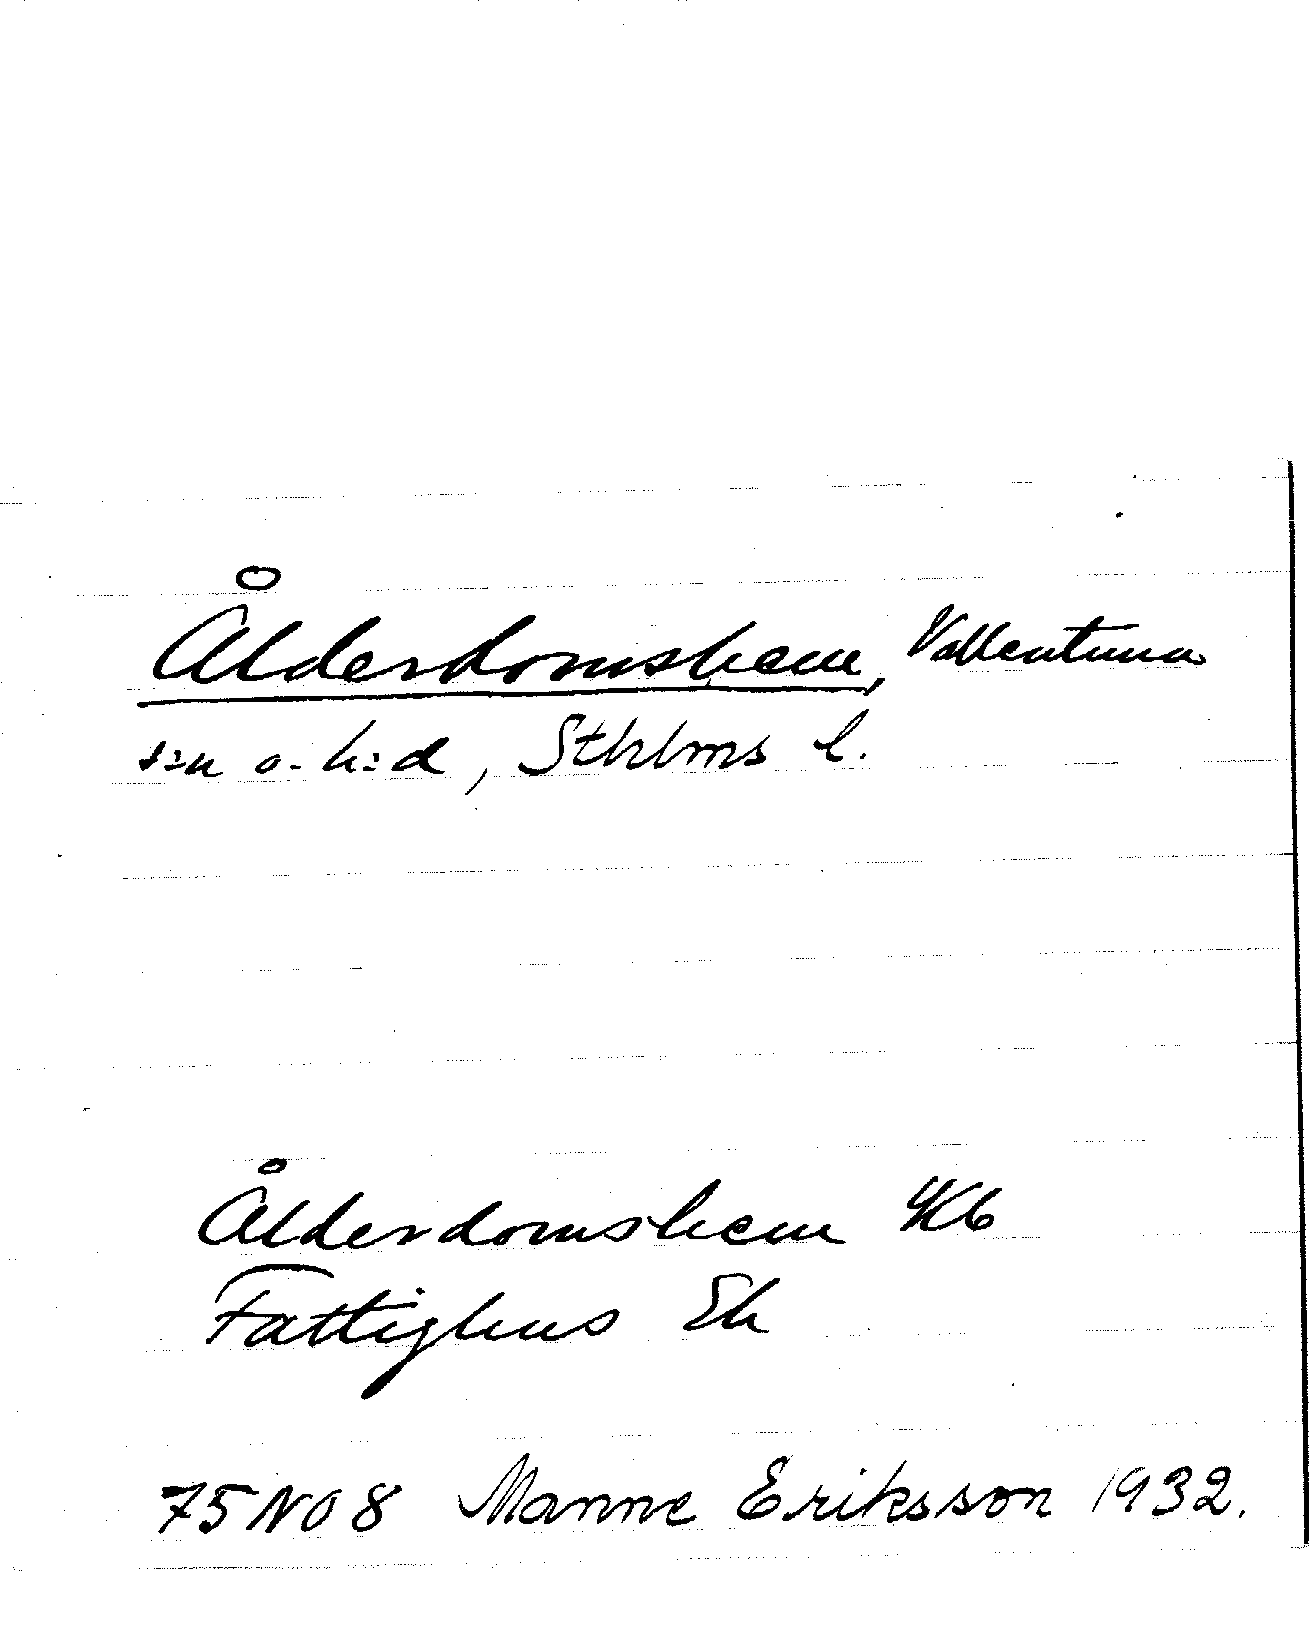 Ålderdomshem, Vallentuna
s:n o. h:d, Sthlms l.
Ålderdomshem Kb
Fattighus Ek
75 NO 8 Manne Eriksson 1932.